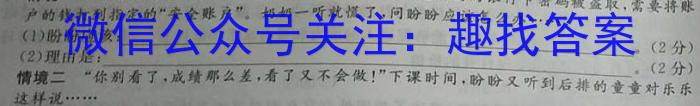 户的钱打到指定的“安全账户”。奶奶一听就慌了，问盼盼应
码被盗取，需要将账
(1)盼
。(2分)
(2)理由是：
。(2分)
微信公众号关注：趣找答案
情境二 “你别看了，成绩那么差，看了又不会做！”下课时间，盼盼又听到后排的童童对乐乐
这样说……